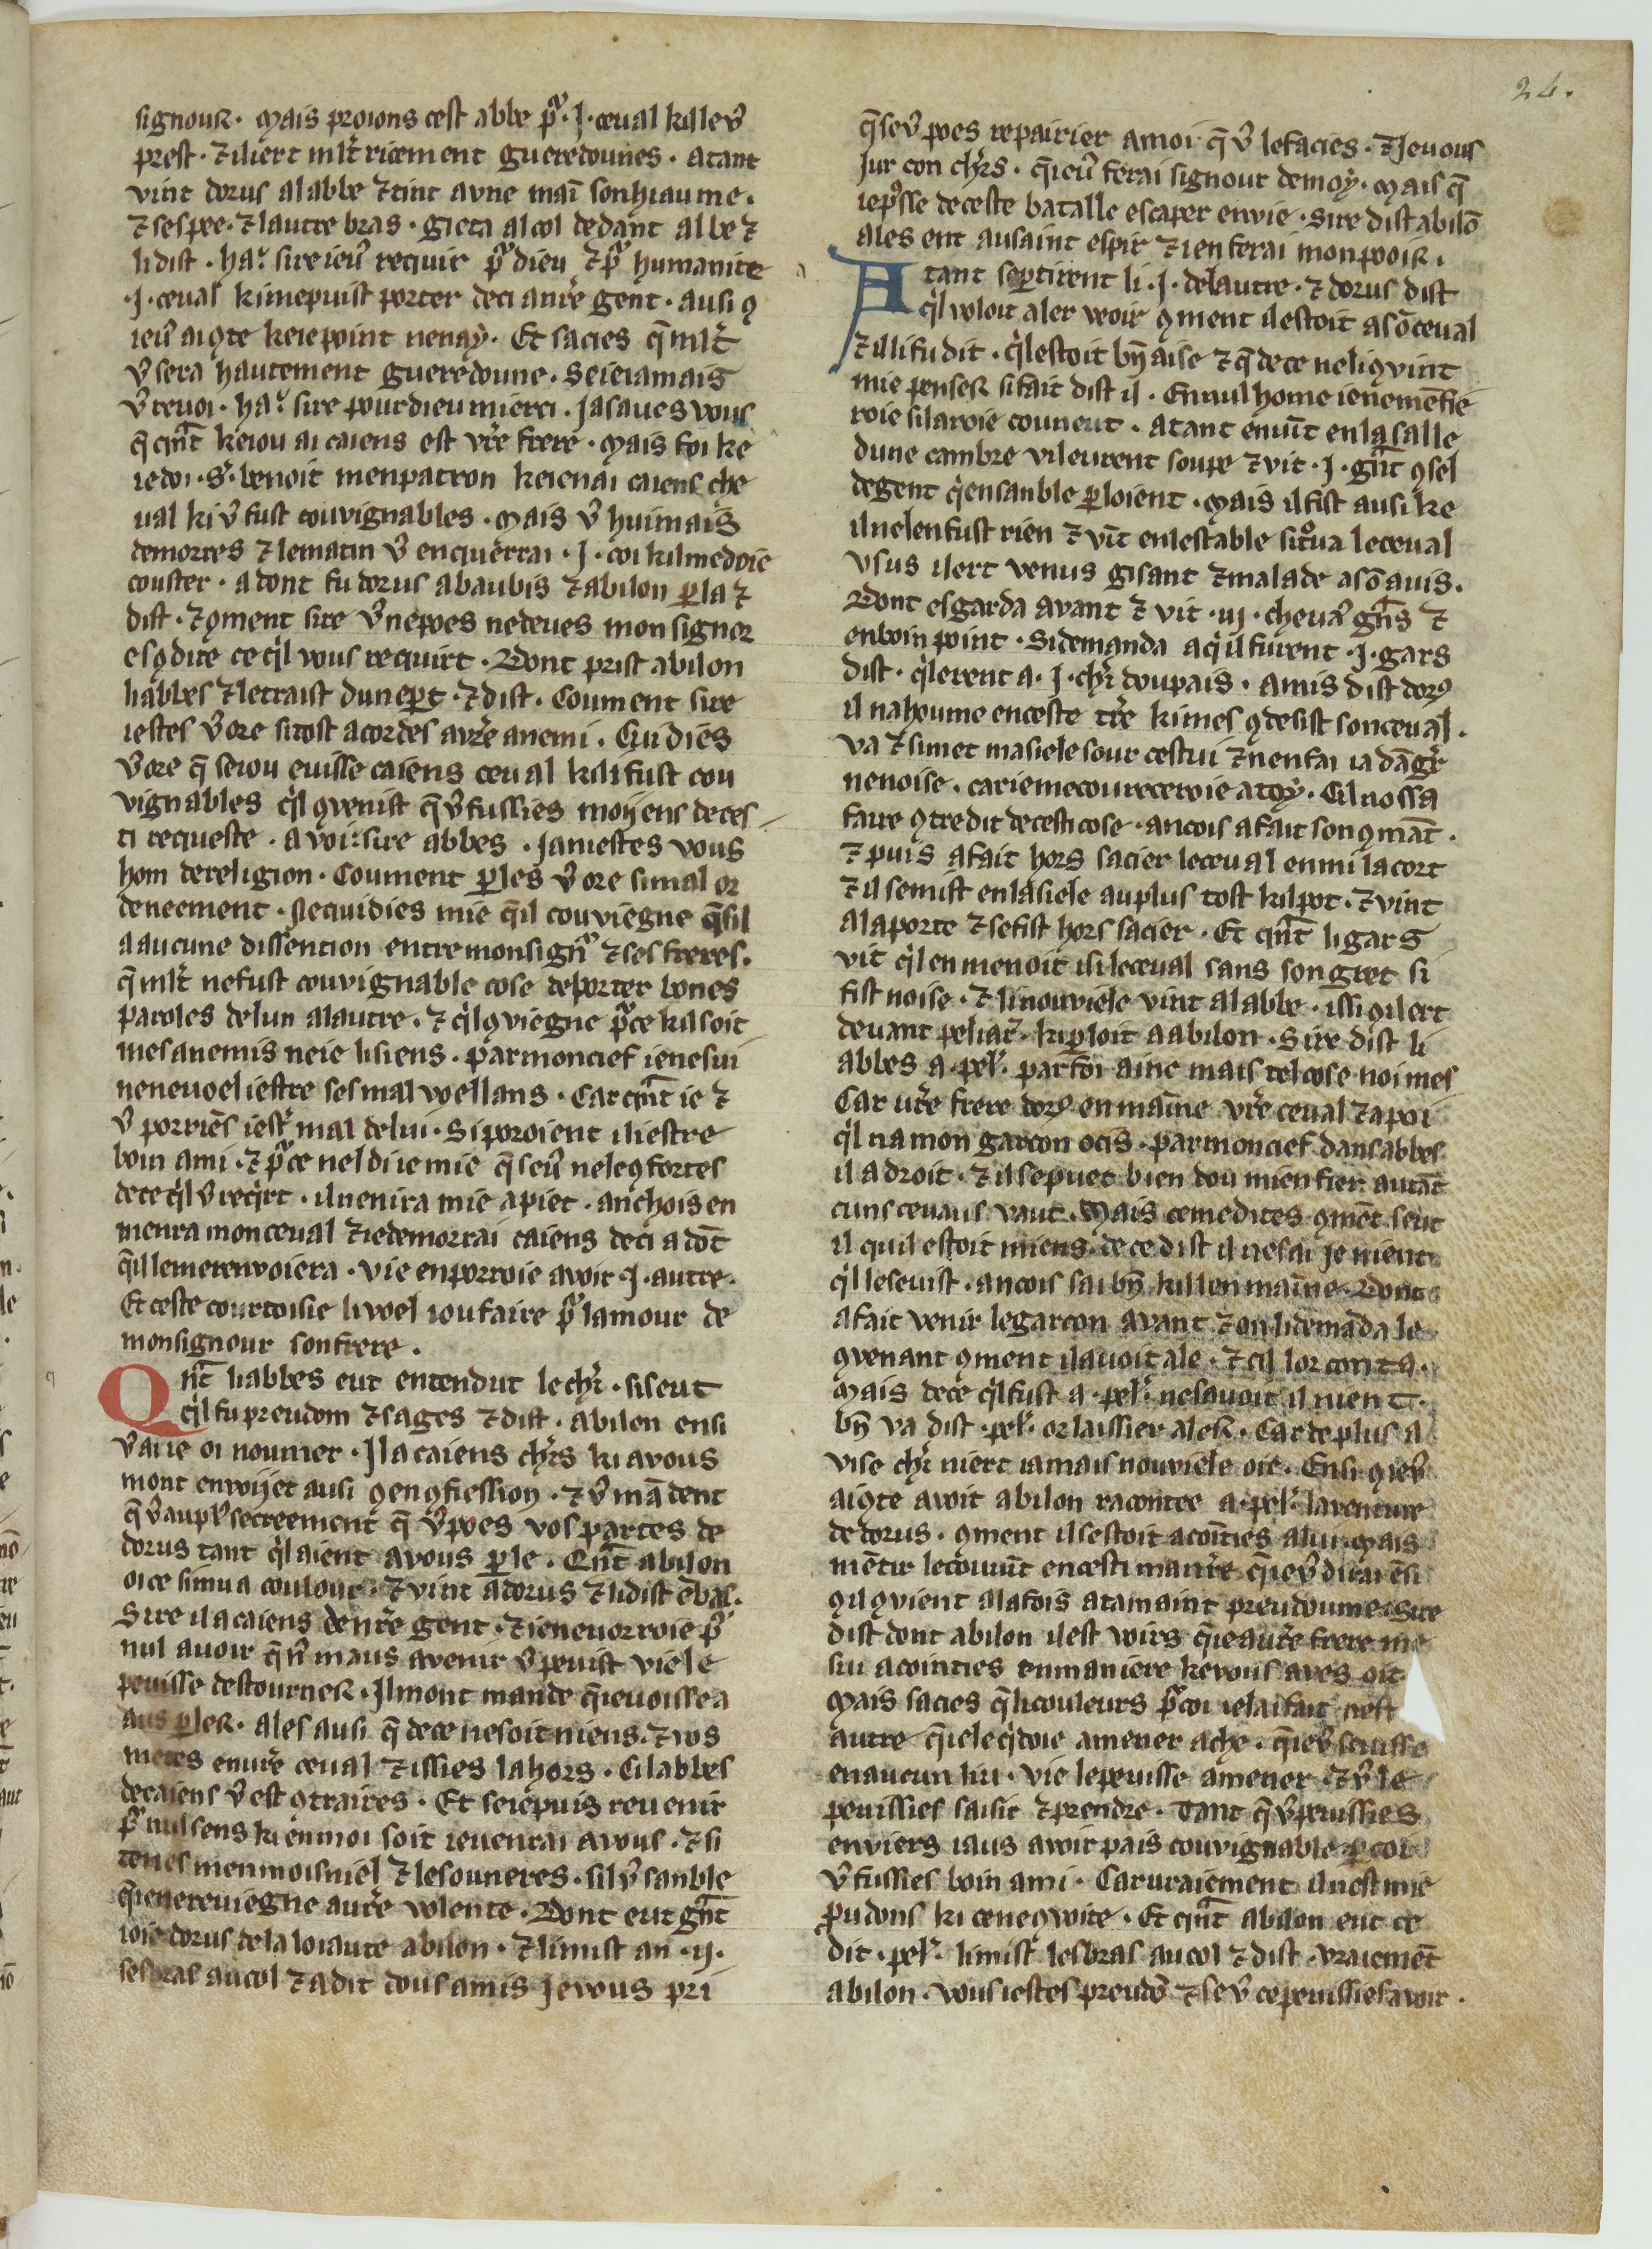 24.
signour. Mais proions cest abbe pͬ .J. ceual kil lev̾
prest. ⁊ il iert ml̾t ricement gueredounes. Atant
vint dorus al abbe ⁊ tint a vne mai̅ son hiaume.
⁊ sespee. ⁊ lautre bras. gieta al col dedant albe ⁊
li dist. ha. sire ieu̾ requir pͬ dieu ⁊ pͬ humanite
.J. ceual ki me puist porter deci a nr̅e gent. ausi ꝯ
ieu̾ aiꝯte ke ie point nen ay. Et sacies q̅ ml̾t
v̾ sera hautement gueredoune. Se ie iamais
v̾ reuoi. ha. sire pour dieu mierci. Ja saues vous
q̅ cͣnt keiou ai caiens est vr̅e frere. Mais foi ke
ie doi .S. benoit men patron ke ie nai caiens che
ual ki v̾ fust couvignables. Mais v̾ huimais
demorres ⁊ le matin v̾ enquerrai .J. coi kil me doie
couster. adont fu dorus abaubis ⁊ abilon ꝑla ⁊
dist. ⁊ ꝯment sire v̾ ne poes ne deues mon signor
esꝯdire ce qͥl vous requirt. Dont prist abilon
li abbes ⁊ le traist dune ꝑt. ⁊ dist. Coument sire
iestes v̾ ore si tost acordes a vr̅e anemi. Cuidies
v̾ ore q̅ se iou euisse caiens ceual ki li fust cou
vignables qͥl ꝯuenist q̅ v̾ fussies moyiens de ces
ti requeste. a voir sire abbes. Ja niestes vous
hom de religion. Coument ꝑles v̾ ore si mal or
deneement. Ne cuidies mie q̅ il couviegne q̅ sil
a aucune dissention entre mon signͬ ⁊ ses freres.
q̅ ml̾t ne fust couvignable cose de porter bones
paroles de lun a lautre. ⁊ qͥl ꝯuiegne pͬ ce kil soit
mes anemis ne ie li siens. Par mon cief ie ne sui
ne ne voel iestre ses mal wellans. Car cͣnt ie ⁊
v̾ porriens iestͬ mal de lui. Si poroient il iestre
boin ami. ⁊ pͬ ce nel di ie mie q̅ seu̾ ne le ꝯfortes
de ce qͥl v̾ reqͥrt. il nen ira mie a piet. anchois en
menra mon ceual ⁊ ie demorrai caiens deci a dōt
q̅ il le me renvoiera. V ie en porroie avoir .J. autre.
Et ceste courtoisie li woel iou faire pͬ lamour de
mon signour son frere.
Qnͣt li abbes eut entendut le chr̅. si seut
qͥl fu preudom ⁊ sages ⁊ dist. abilon ensi
v̾ ai ie oi noumer. Jl a caiens chr̅s ki a vous
mont envoijet ausi ꝯ en ꝯfiession. ⁊ v̾ mādent
q̅ v̾ au plꝰ secreement q̅ v̾ poes vos partes de
dorus tant qͥl aient a vous ꝑle. Cͣnt abilon
oi ce si mua coulour. ⁊ vint a dorus ⁊ li dist ē bas.
Sire il a caiens de nr̅e gent. ⁊ ie ne vorroie pͬ
nul avoir q̅ nꝰ maus avenir v̾ peuist v ie le
peuisse destourner. Jl mont mande q̅ ie voisse a
aus ꝑler. ales ausi q̅ de ce ne soit niens. ⁊ vos
metes en vr̅e ceual ⁊ issies la hors. Cil abbes
de caiens v̾ est ꝯtraires. Et se ie puis reuenir
pͬ nul sens ki en moi soit ie uenrai a vous. ⁊ si
tenes men moisniel ⁊ le souneres. sil v̾ sanble
q̅ ie ne reuiegne a vr̅e volente. Dont eut gͣnt
ioie dorus de la loiaute abilon. ⁊ li mist an .ij.
ses bras au col ⁊ a dit dous amis Je vous pri
q̅ se v̾ poes repairier a moi q̅ v̾ le facies. ⁊ Je vous
jur con chr̅s. q̅ ieu̾ ferai signour de moy. Mais q̅
ie pꝰsse de ceste batalle escaper en vie. Sire dist abilō
ales ent au saint espir ⁊ ien ferai mon pooir.
Atant se ꝑtirent li .J. de lautre. ⁊ dorus dist
qͥl voloit aler veoir ꝯment il estoit a sō ceual
⁊ il li fu dit. qͥl estoit bn̅ aise ⁊ q̅ de ce ne li ꝯuint
mie penser si fait dist il. En nul home ie ne me fie
roie si laroie couneut. Atant en uīt en la salle
dune cambre v il eurent soupe ⁊ vit .J. gͣnt ꝯsel
de gent qͥ ensanble ꝑloient. Mais il fist ausi ke
il nelen fust rien ⁊ vīt en lestable si troua le ceual
v sus il ert venus gisant ⁊ malade a sō auis.
Dont esgarda avant ⁊ vit .iij. cheuaͬ gͣns ⁊
en boin point. Si demanda a qͥ il furent .J. gars
dist. qͥl erent a .J. chr̅ dou pais. Amis dist dorꝰ
il na houme en ceste tr̅e ki mes ꝯdesist son ceual.
Va ⁊ si met ma siele sour cestui ⁊ nen fai ia dāgͬ
ne noise. car ie me coureceroie a toy. Cil nossa
faire ꝯtredit de cesti cose. ancois a fait son ꝯmāt.
⁊ puis a fait hors sacier le ceual enmi la cort
⁊ il se mist en la siele au plus tost kil pot. ⁊ vint
a la porte ⁊ se fist hors sacier. Et cͣnt li gars
vit qͥl en menoit isi le ceual sans son gret si
fist noise. ⁊ li nouviele vint al abbe. issi ꝯil ert
devant peliarͬ. ki ꝑloit a abilon. Sire dist li
abbes a .pel̾. par foi ainc mais tel cose noi mes
Car vr̅e frere dorꝰ en maine vr̅e ceual ⁊ a poi
qͥl na mon garcon ocis. Par mon cief dans abbes
il a droit. ⁊ il se puet bien dou mien fier autāt
cuns ceuaus vaut. Mais ce me dites ꝯmēt seut
il quil estoit miens. de ce dist il ne sai Je nient
qͥl le seuist. ancois sai bn̅ kil len maīne. Dont
a fait venir le garcon avant ⁊ on li demāda le
ꝯuenant ꝯment il avoit ale. ⁊ cil lor conta.
Mais de ce qͥl fust a .pel̾. ne savoit il nient.
bn̅ va dist .pel̾. or laissier aler. Car de plus a
vise chr̅ niert iamais nouviele oie. Ensi ꝯ ieu̾
aiꝯte avoit abilon racontee a .pel̾. laventure
de dorus. ꝯment il sestoit acoīties a lui. Mais
mētir le cōuīnt en cesti manr̅e q̅ ieu̾ dirai ēsi
ꝯil ꝯuient a la fois a tamaint preudoume. Sire
dist dont abilon il est voirs q̅ ie a vr̅e frere me
sui acointies en maniere ke vous aves oit
Mais sacies q̅ li couleurs pͬ coi ie lai fait nest
autre q̅ ie le qͥdoie amener a che. q̅ ieu̾ seuisse
en aucun liu. v ie le peuisse amener. ⁊ v̾ le
peuissies saisir ⁊ prendre. Tant q̅ v̾ peuissies
enviers iaus avoir pais couvignable ꝑ coi
v̾ fussies boin ami. Car vraiement il nest mie
prudons ki ce ne ꝯvoite. Et cͣnt abilon eut ce
dit .pel̾. li mist les bras au col ⁊ dist. vraiemēt
abilon. vous iestes preudō ⁊ se v̾ ce peuissies avoir.